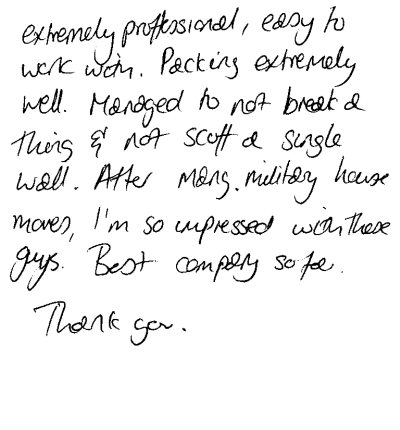 extremely professional, easy to
work with. Packing extremely
well. Managed to not break a
thing & not scuff a single
wall. After many military house
moves, I'm so impressed with these
guys. Best company so far.
Thank you.